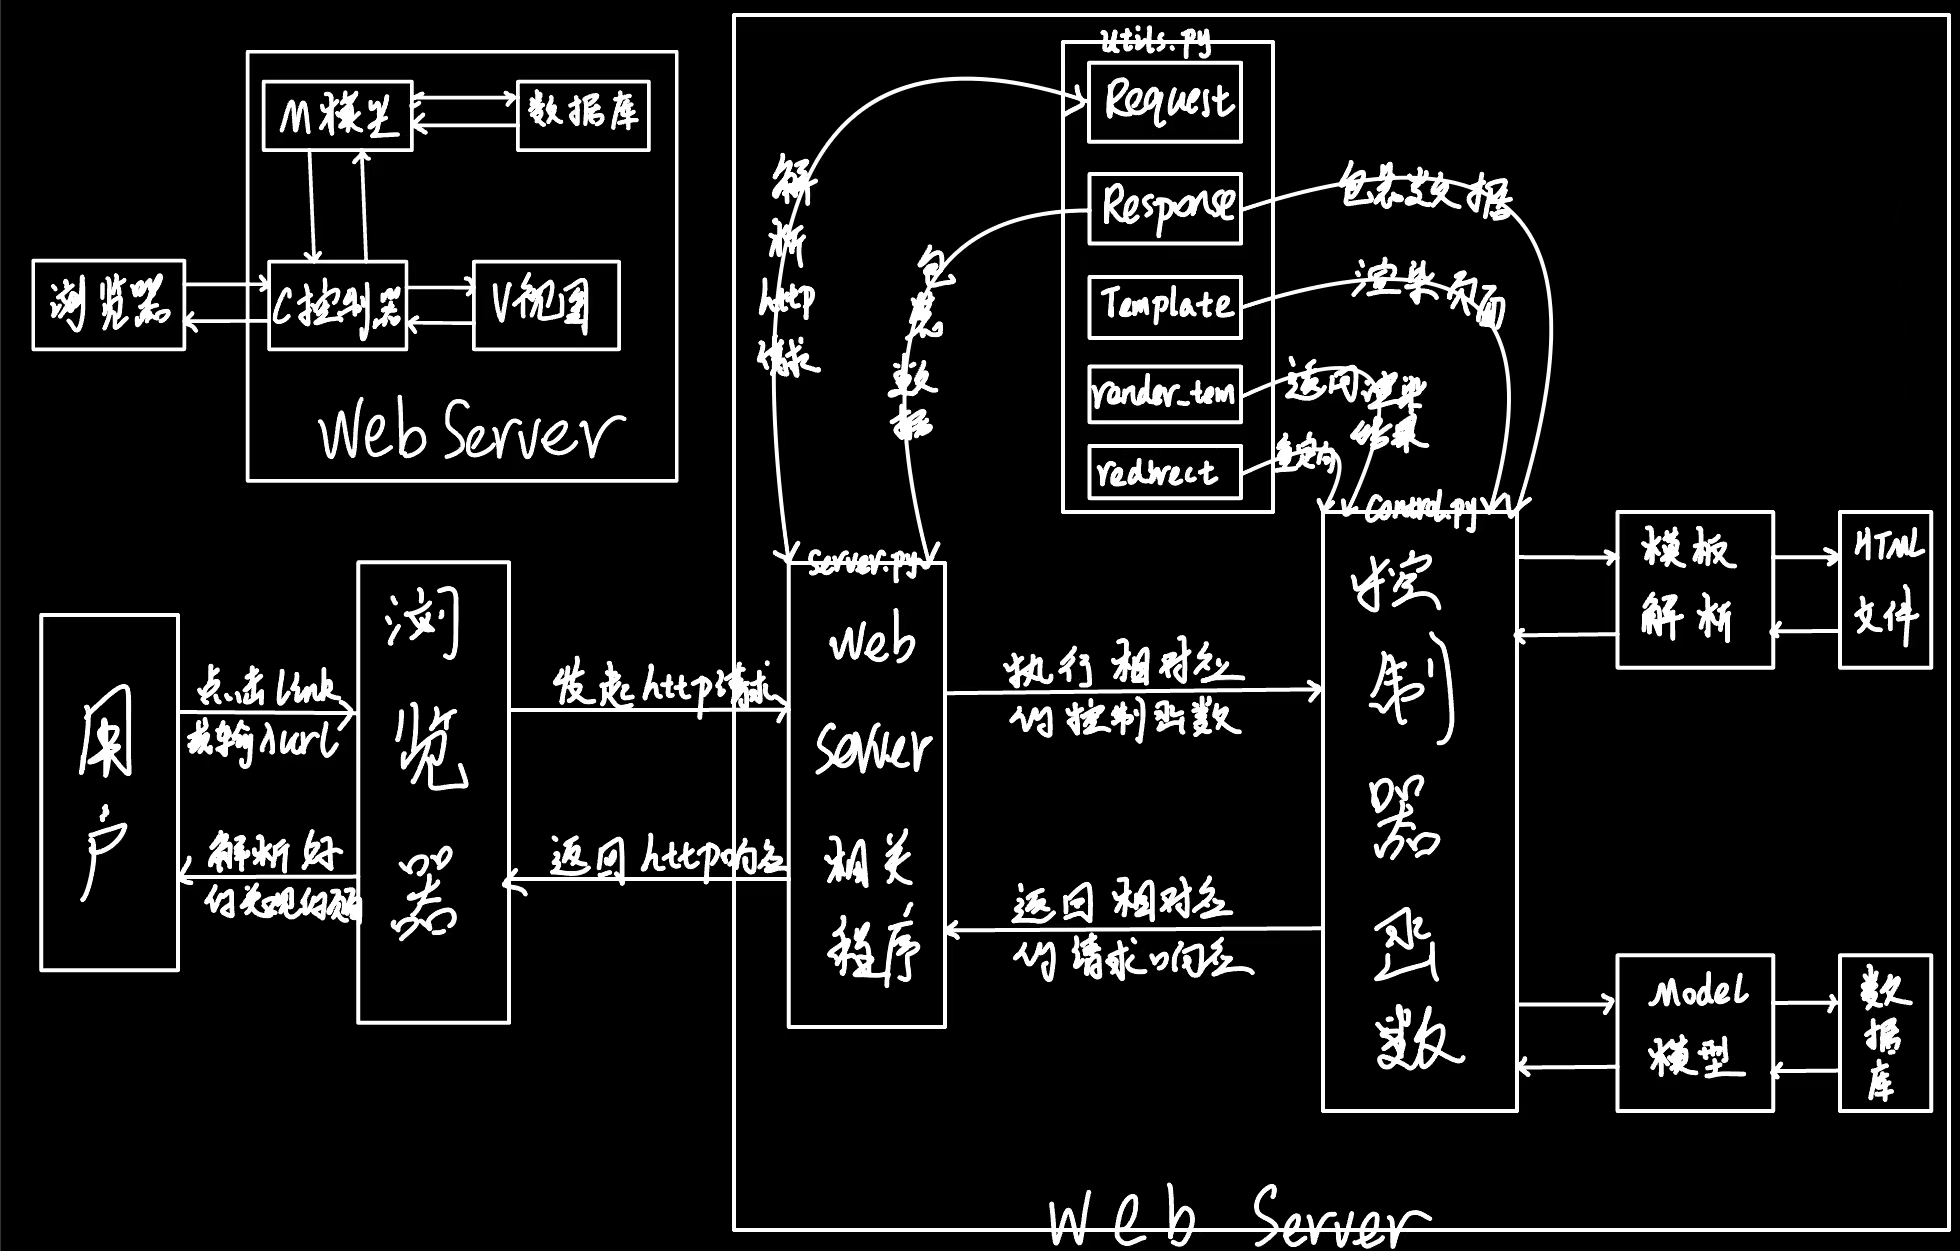 M模型
数据库
浏览器
C控制器
V视图
Web Server
utils.py
Request
Response
Template
render_tem
redirect
解析http请求
包装数据
包装数据
渲染页面
返回渲染
结果
重定向
server.py
Control.py
用户
点击link
或输入url
解析好
浏览器
发起http请求
返回http响应
Web
Server
相关
程序
执行相对应
的控制函数
返回相对应
的请求响应
控制器函数
模板
解析
HTML
文件
Model
模型
数据库
Web Server